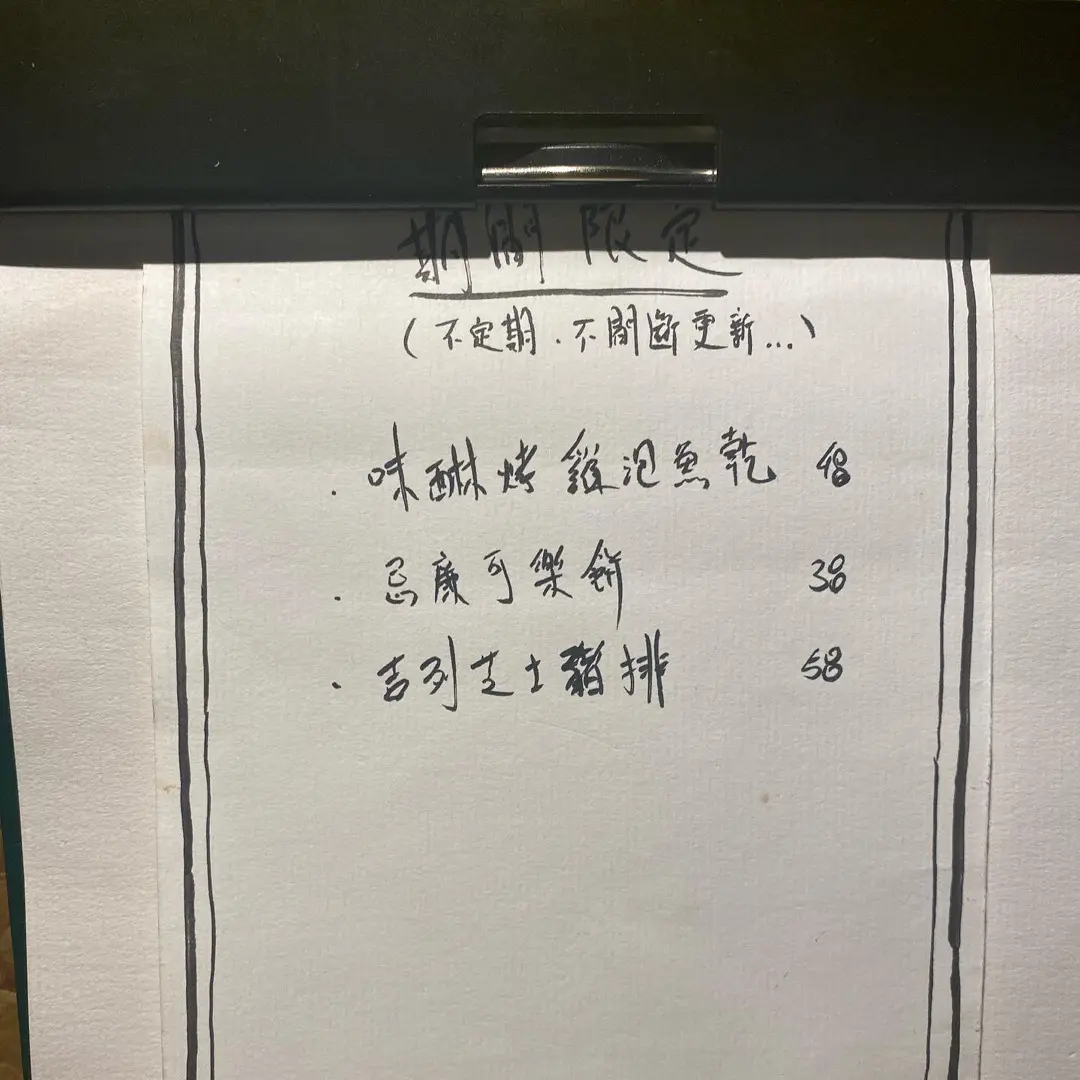 期間限定
(不定期.不間斷更新...)
. 味醂烤雞泡魚乾 48
. 忌廉可樂餅 38
. 吉列芝士豬排 58